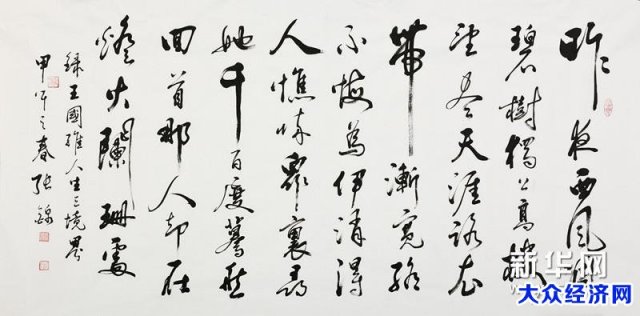 昨夜西風凋
碧樹獨上高樓
望尽天涯路衣
帶漸寬終
不悔為伊消得
人憔悴眾裏尋
她千百度驀然
回首那人却在
燈火闌珊處
錄王國維人生三境界
甲午之春張錦
新华网
大众经济网